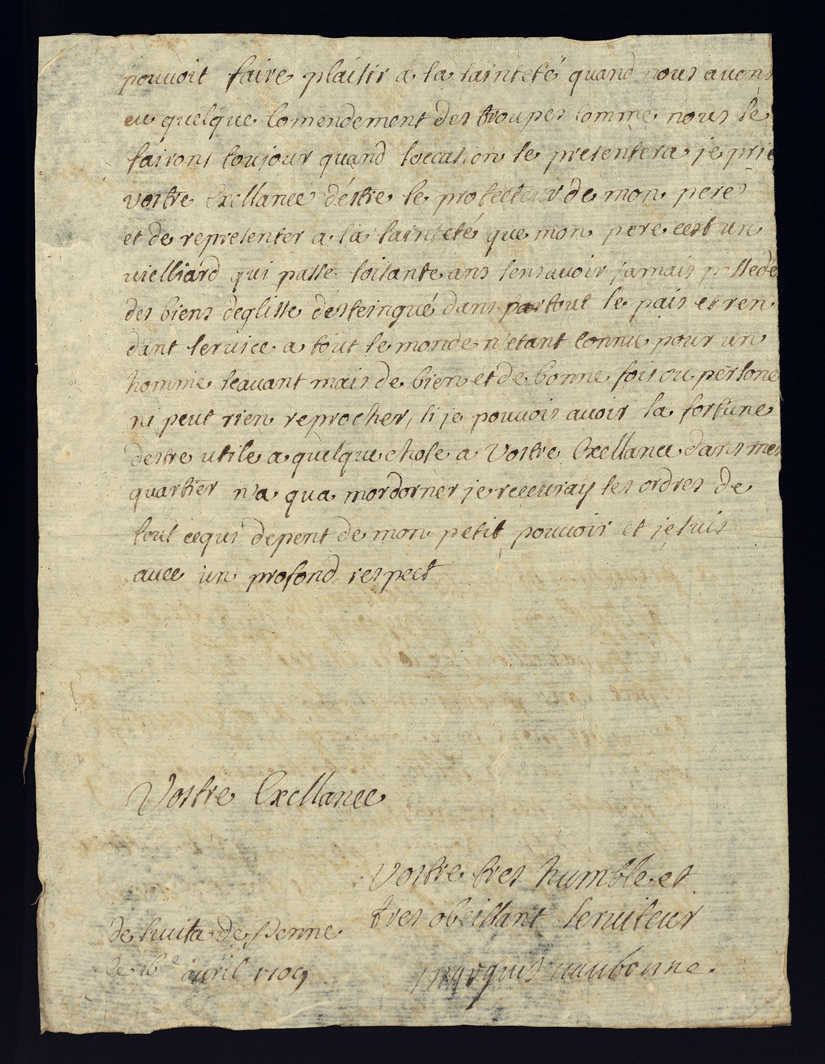 pouvoit faire plaisir a sa sainteté quand nous avons
eu quelque comendement des troupes comme nous le
fairons toujour quand loccation se presentera je prie
vostre Exellance déstre le protecteur de mon pere
et de representer a sa sainteté que mon pere cest un
vielliard qui passe soisante ans sens avoir jamais possedé
des biens deglisse désteingué dans partout le pais et ren
dant service a tout le monde n'etant connu pour un
homme scavant mais de bien et de bonne fois ou persone
ni peut rien reprocher, si je pouvois avoir la fortune
destre utile a quelque chose a Vostre Exellance dans mes
quartier n'a qua mordorner je recevray ses ordres de
tout cequi depent de mon petit pouvoir et je suis
avec un profond respect
Vostre Exellance
Vostre tres humble et
tres obeissant serviteur
marquis vaubonne.
de Penne
le 16e avril 1709